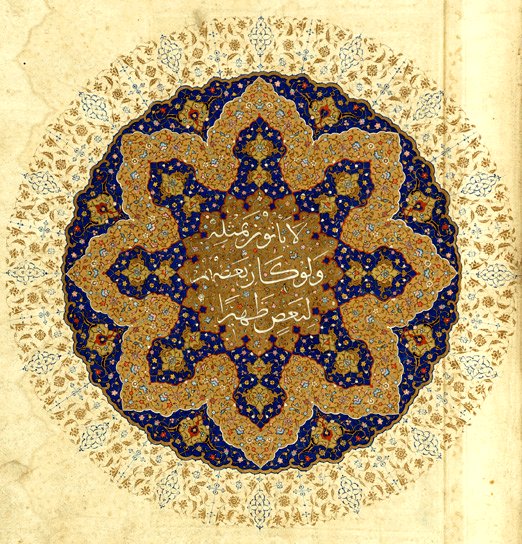 لا ياتون بمثله
ولو كان بعضهم
لبعض ظهيرا